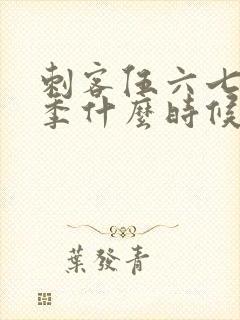 刺客伍六七
季什麼時候
葉發青